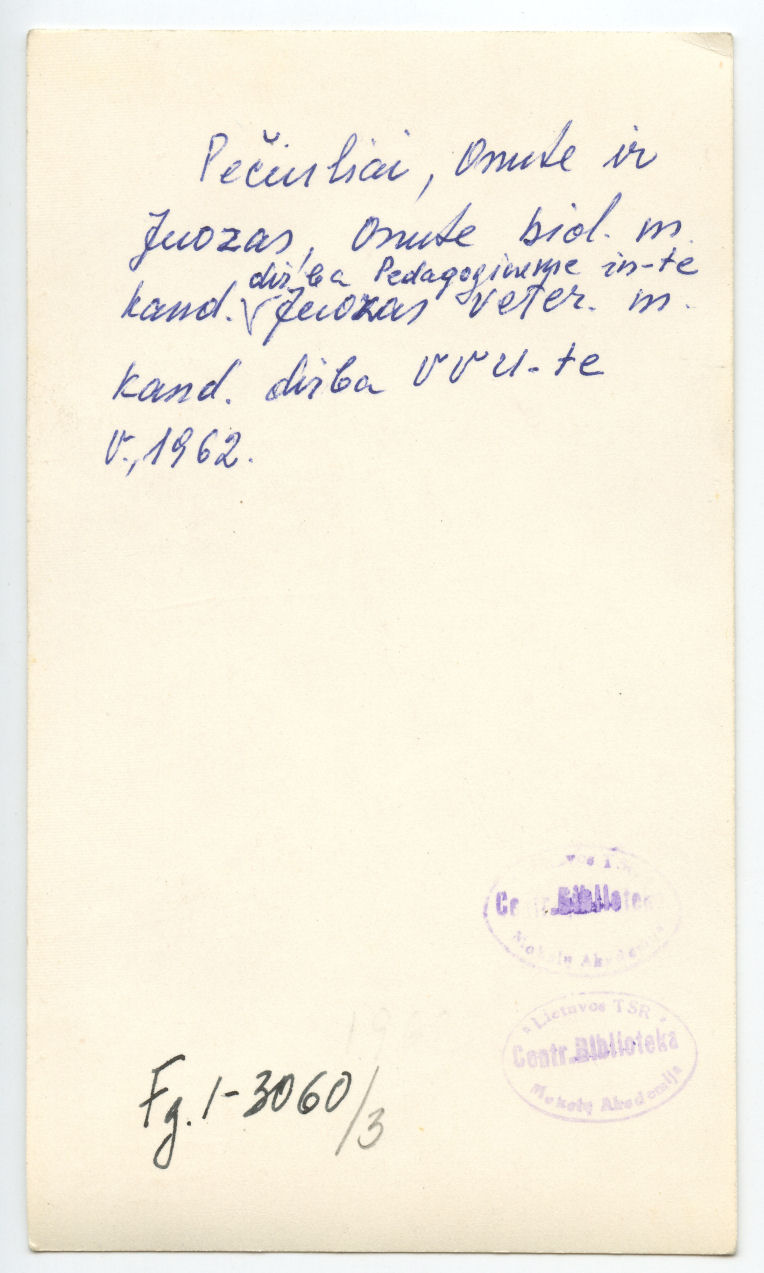 Pečiuliai, Onutė ir
Juozas, Onutė biol. m.
dirba Pedagoginiame in-te
kand. V Juozas veter. m.
kand. dirba VVU-te
V., 1962.
Lietuvos TSR
Centr. Biblioteka
Mokslų Akademija
Lietuvos TSR
Centr. Biblioteka
Mokslų Akademija
Fg. 1-3060/3